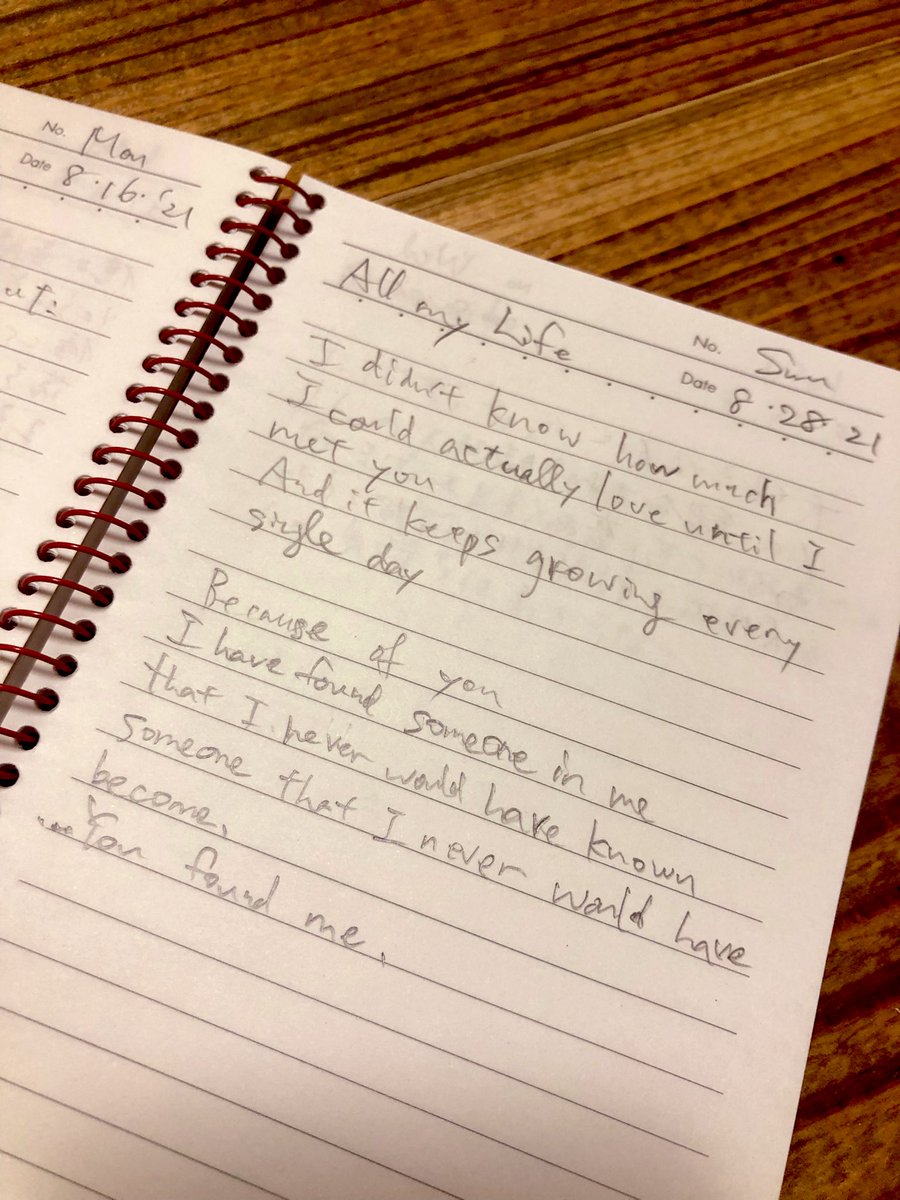 No. Mon
Date 8.16.'21
ut:
All my Life
No. Sun
Date 8.28 21
I didn't know how much
I could actually love until I
met you
And it keeps growing every
single day
Because of you
I have found someone in me
that I never would have known
Someone that I never would have
become.
You found me.